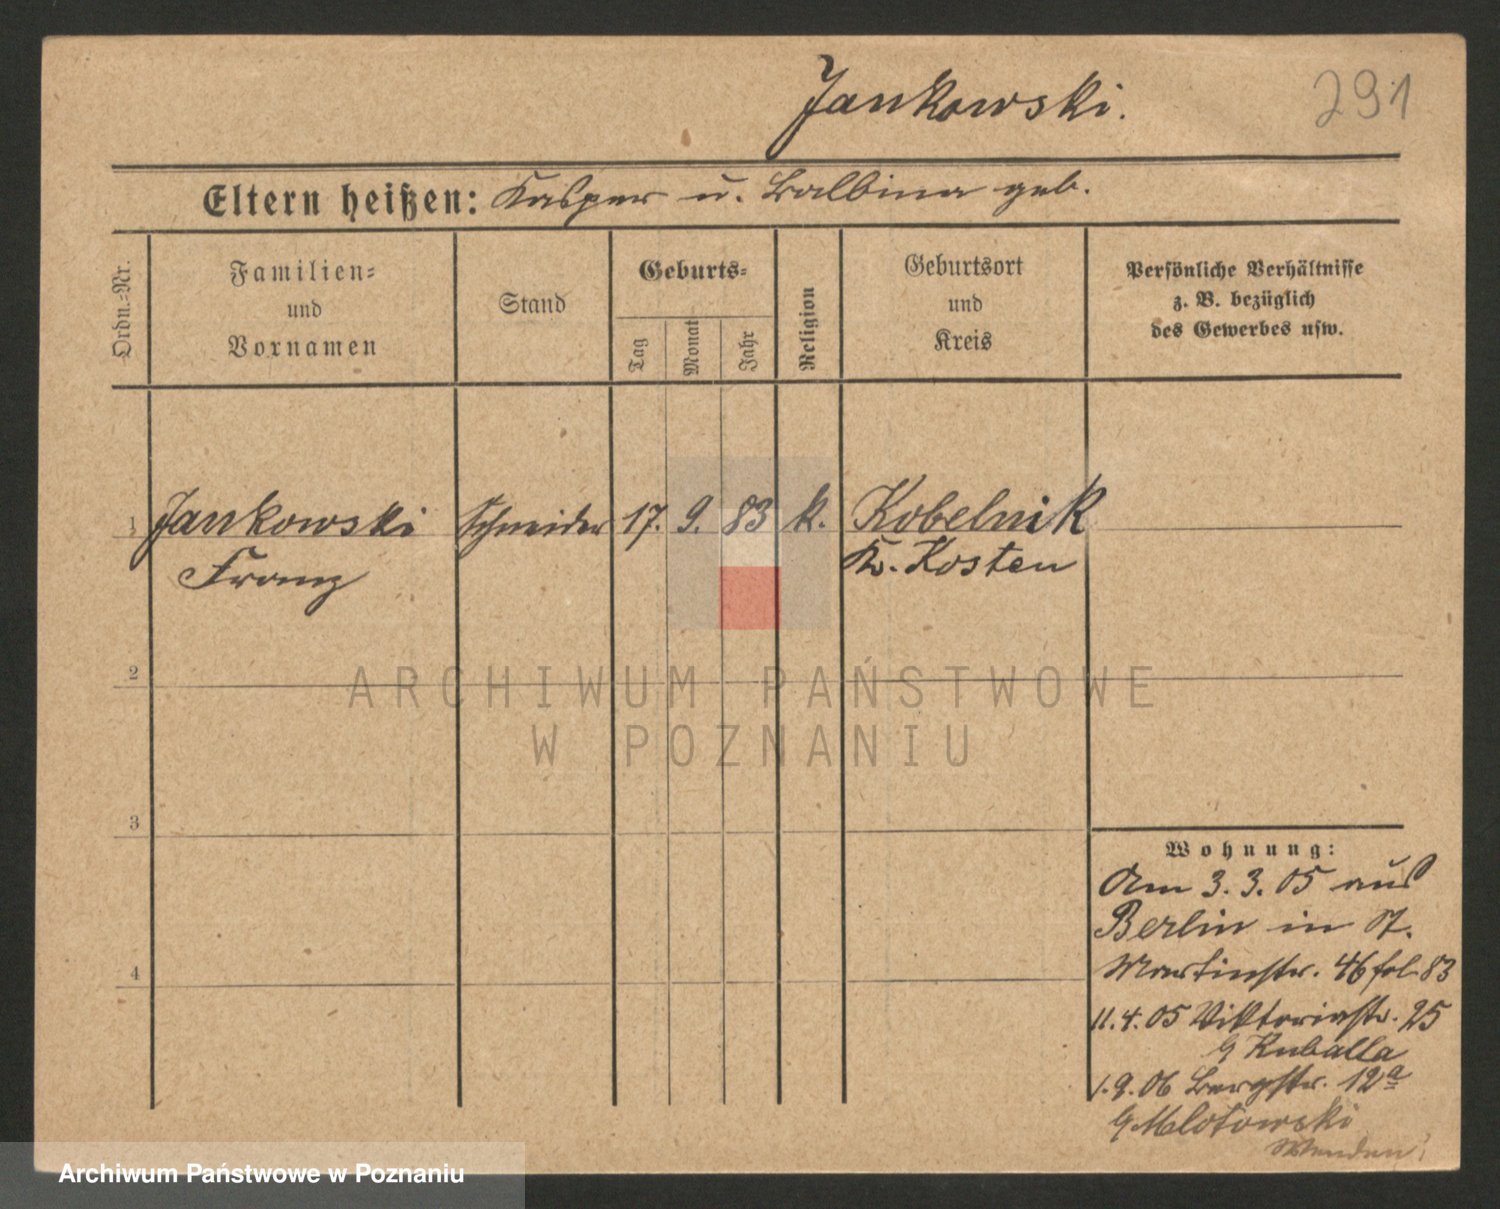 Jankowski.
291
Eltern heißen: Kasper u. Balbina geb.
Ordn.-Nr.
Familien-
und
Vornamen
Stand
Geburts-
Tag
Monat
Jahr
Religion
Geburtsort
und
Kreis
Persönliche Verhältnisse
z. B. bezüglich
des Gewerbes usw.
1 Jankowski Schneider 17. 9. 83 k. Kobelnik
Franz Kr. Kosten
2
ARCHIWUM PAŃSTWOWE
W POZNANIU
3
4
Wohnung:
Am 3. 3. 05 aus
Berlin in St.
Martinstr. 46 fol 83
11.4.05 Viktoriastr. 25
Kuballa
1.9.06 Bergstr. 12a
Mlotowski
Wenden!
Archiwum Państwowe w Poznaniu